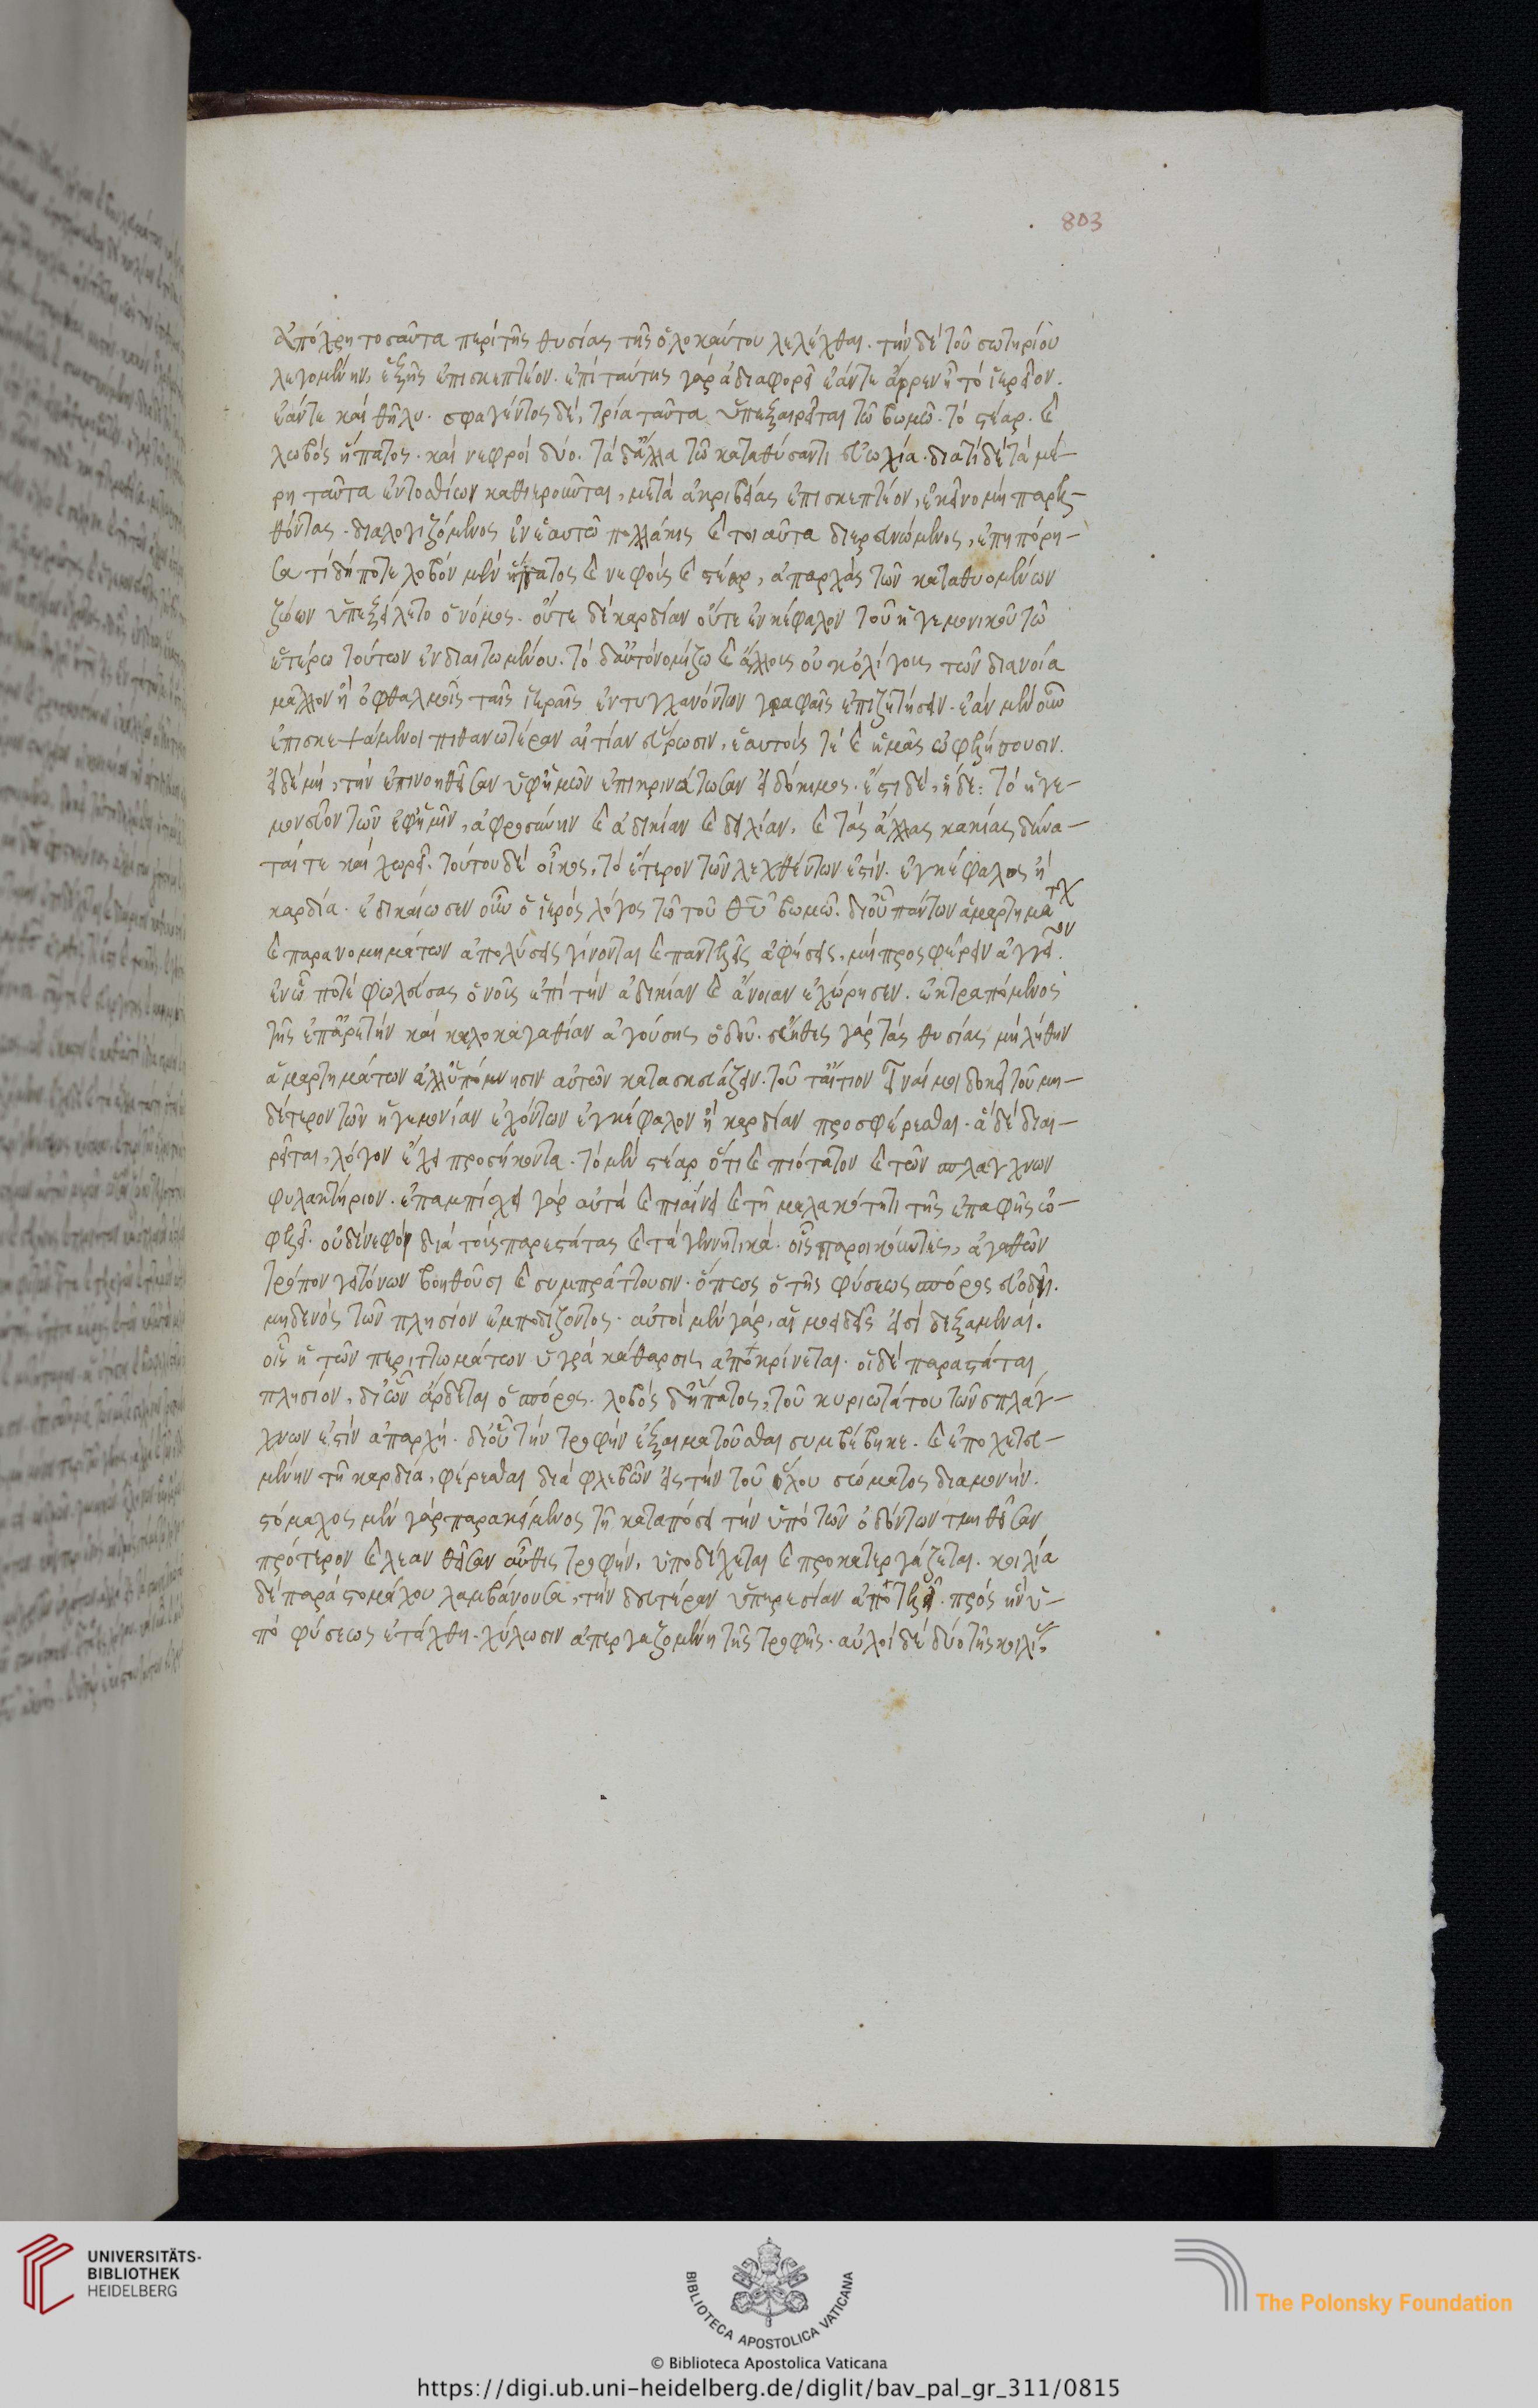 803
Ἀπόχρη τοσαῦτα περὶ τῆς θυσίας τῆς ὁλοκαύτου λελέχθαι. τὴν δὲ τοῦ σωτηρίου
λεγομένην, ἑξῆς ἐπισκεπτέον. ἐπὶ ταύτης γὰρ ἀδιαφορεῖ ἐάντε ἄρρεν ἢ τὸ ἱερεῖον.
ἐάντε καὶ θῆλυ. σφαγέντος δὲ, τρία ταῦτα ὑπεξαιρεῖται τῶ βωμῶ. τὸ στέαρ. καὶ
λωβὸς ἥπατος. καὶ νεφροὶ δύο. τὰ δ' ἄλλα τῶ καταθύσαντι εὐωχία. διατί δὲ τὰ μέ-
ρη ταῦτα ἐντοσθίων καθιεροῦνται, μετὰ ἀκριβείας ἐπισκεπτέον, ἐκεῖνο μὴ παρελ-
θόντας. διαλογιζόμενος ἐν ἑαυτῶ πολλάκις καὶ τοιαῦτα διερευνώμενος, ἐπηπόρη-
σα τί δήποτε λοβὸν μὲν ἥπατος καὶ νεφροὺς καὶ στέαρ, ἀπαρχὰς τῶν καταθυομένων
ζώων ὑπεξείλετο ὁ νόμος. οὔτε δὲ καρδίαν οὔτε ἐνκέφαλον τοῦ ἡγεμονικοῦ τῶ
ἑτέρω τούτων ἐνδιαιτωμένου. τὸ δ' αὐτὸ νομίζω καὶ ἄλλοις οὐκ ὀλίγοις τῶν διανοία
μᾶλλον ἢ ὀφθαλμοῖς ταῖς ἱεραῖς ἐντυγχανόντων γραφαῖς ἐπιζητήσειν. ἐὰν μὲν οὖν
ἐπισκεψάμενοι πιθανωτέραν αἰτίαν εὕρωσιν, ἑαυτούς τε καὶ ἡμᾶς ὠφελήσουσιν.
εἰ δὲ μὴ, τὴν ἐπινοηθεῖσαν ὑφ' ἡμῶν ἐπικρινάτωσαν εἰ δόκιμος. ἔστι δὲ, ἥδε: τὸ ἡγε-
μονεῦον τῶν ἐφ' ἡμῖν, ἀφροσύνην καὶ ἀδικίαν καὶ δειλίαν, καὶ τὰς ἄλλας κακίας δύνα-
ταί τε καὶ χωρεῖ. τούτου δὲ οἶκος, τὸ ἕτερον τῶν λεχθέντων ἐστίν. ἐγκέφαλος ἢ
καρδία. ἐδικαίωσεν οὖν ὁ ἱερὸς λόγος τῶ τοῦ θυ βωμῶ. δι' οὗ πάντων ἁμαρτημάτων
καὶ παρανομημάτων ἀπολύσεις γίνονται καὶ παντελεῖς ἀφήσεις, μὴ προσφέρειν ἀγγεῖον.
ἐν ὧ ποτὲ φωλεύσας ὁ νοῦς ἐπὶ τὴν ἀδικίαν καὶ ἄνοιαν ἐχώρησεν. ἐκτραπόμενος
τῆς ἐπ' ἀρετὴν καὶ καλοκαγαθίαν ἀγούσης ὁδοῦ. εὔηθες γὰρ τὰς θυσίας μὴ λήθην
ἁμαρτημάτων ἀλλ' ὑπόμνησιν αὐτῶν κατασκευάζειν. τοῦτ' αἴτιον εἶναί μοι δοκεῖ τοῦ μη-
δέτερον τῶν ἡγεμονίαν ἐχόντων ἐγκέφαλον ἢ καρδίαν προσφέρεσθαι. ἃ δὲ διαι-
ρεῖται, λόγον ἔχει προσήκοντα. τὸ μὲν στέαρ ὅτι καὶ πιότατον καὶ τῶν σπλάγχνων
φυλακτήριον. ἐπαμπίσχει γὰρ αὐτὰ καὶ πιαίνει καὶ τῇ μαλακότητι τῆς ἐπαφῆς ὠ-
φελεῖ. οἱ δὲ νεφροὶ διὰ τοὺς παραστάτας καὶ τὰ γεννητικά. οἷς παροικοῦντες, ἀγαθῶν
τρόπον γειτόνων βοηθοῦσι καὶ συμπράττουσιν. ὅπως ὁ τῆς φύσεως σπόρος εὐοδῇ.
μηδενὸς τῶν πλησίον ἐμποδίζοντος. αὐτοὶ μὲν γὰρ, αἱμοειδεῖς εἰσὶ δεξαμεναί.
οἷς ἡ τῶν περιττωμάτων ὑγρὰ κάθαρσις ἀποκρίνεται. οἱ δὲ παραστάται
πλησίον, δι' ὧν ἄρδεται ὁ σπόρος. λοβὸς δ' ἥπατος, τοῦ κυριωτάτου τῶν σπλάγ-
χνων ἐστὶν ἀπαρχή. δι' οὗ τὴν τροφὴν ἐξαιματοῦσθαι συμβέβηκε. καὶ ἐποχετευ-
μένην τῇ καρδία, φέρεσθαι διὰ φλεβῶν εἰς τὴν τοῦ ὅλου σώματος διαμονήν.
στόμαχος μὲν γὰρ παρακείμενος τῇ καταπόσει τὴν ὑπὸ τῶν ὀδόντων τμηθεῖσαν
πρότερον καὶ λεανθεῖσαν αὖθις τροφὴν, ὑποδέχεται καὶ προκατεργάζεται. κοιλία
δὲ παρὰ στομάχου λαμβάνουσα, τὴν δευτέραν ὑπηρεσίαν ἀποτελεῖ. πρὸς ἣν ὑ-
πὸ φύσεως ἐτάχθη. χύλωσιν ἀπεργαζομένη τῆς τροφῆς. αὐλοὶ δὲ δύο τῆς κοιλίας
UNIVERSITÄTS-
BIBLIOTHEK
HEIDELBERG
BIBLIOTECA APOSTOLICA VATICANA
© Biblioteca Apostolica Vaticana
The Polonsky Foundation
https://digi.ub.uni-heidelberg.de/diglit/bav_pal_gr_311/0815